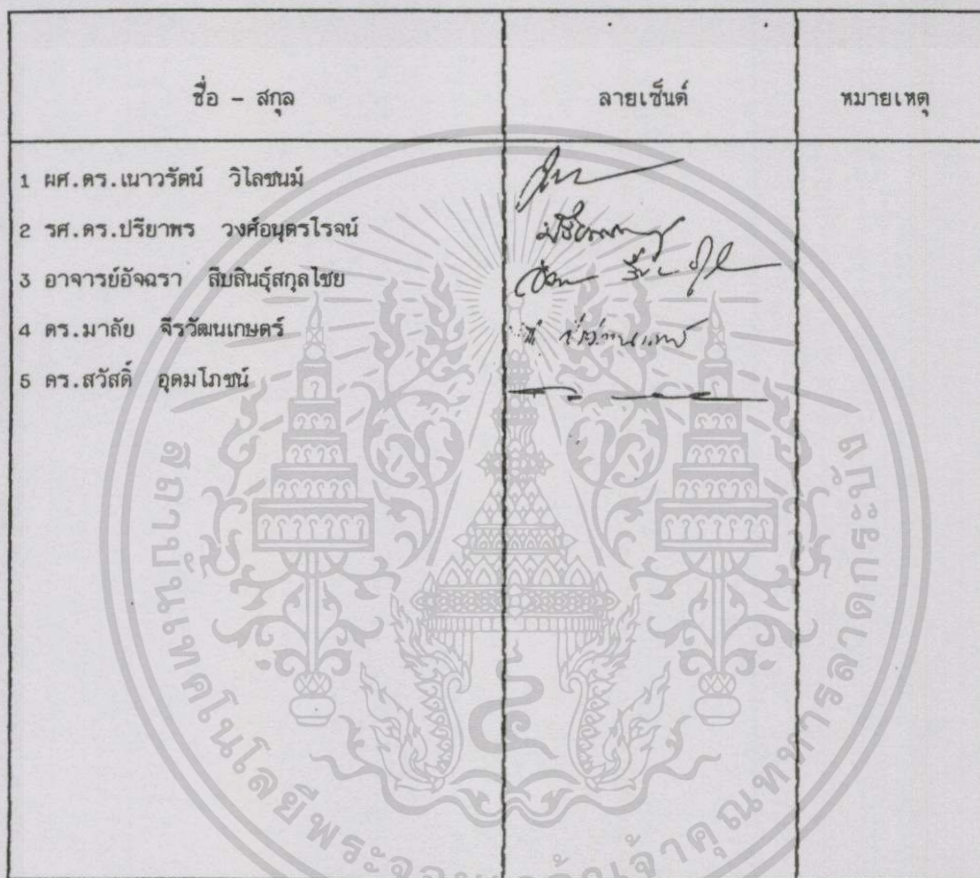 ชื่อ - สกุล ลายเซ็นต์ หมายเหตุ
1 ผศ.ดร.เนาวรัตน์ วิไลชนม์
2 รศ.ดร.ปรียาพร วงศ์อนุตรโรจน์
3 อาจารย์อัจฉรา สืบสินธุ์สกุลไชย
4 ดร.มาลัย จีรวัฒนเกษตร์
5 ดร.สวัสดิ์ อุดมโภชน์
สถาบันเทคโนโลยีพระจอมเกล้าเจ้าคุณทหารลาดกระบัง